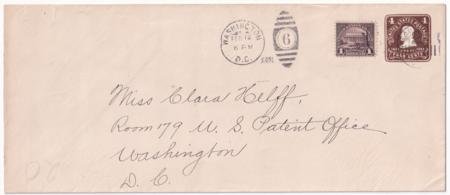 WASHINGTON
FEB 12
6 PM
D.C.
6
4
4
Miss Clara Helff.
Room 179 U. S. Patent Office
Washington
D. C.